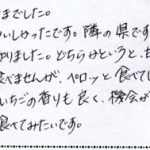 までした。
いしかったです。隣の県です
ありました。どちらかというと、
べませんが、ペロッと食べてし
いちごの香りも良く、機会が
食べてみたいです。